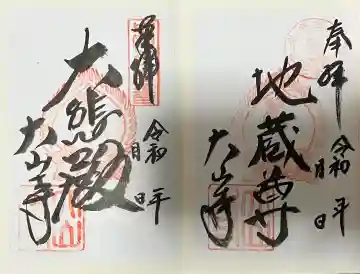 奉拝
令和　年
月　日
地蔵尊
大山寺
令和　年
月　日
大悲殿
大山寺